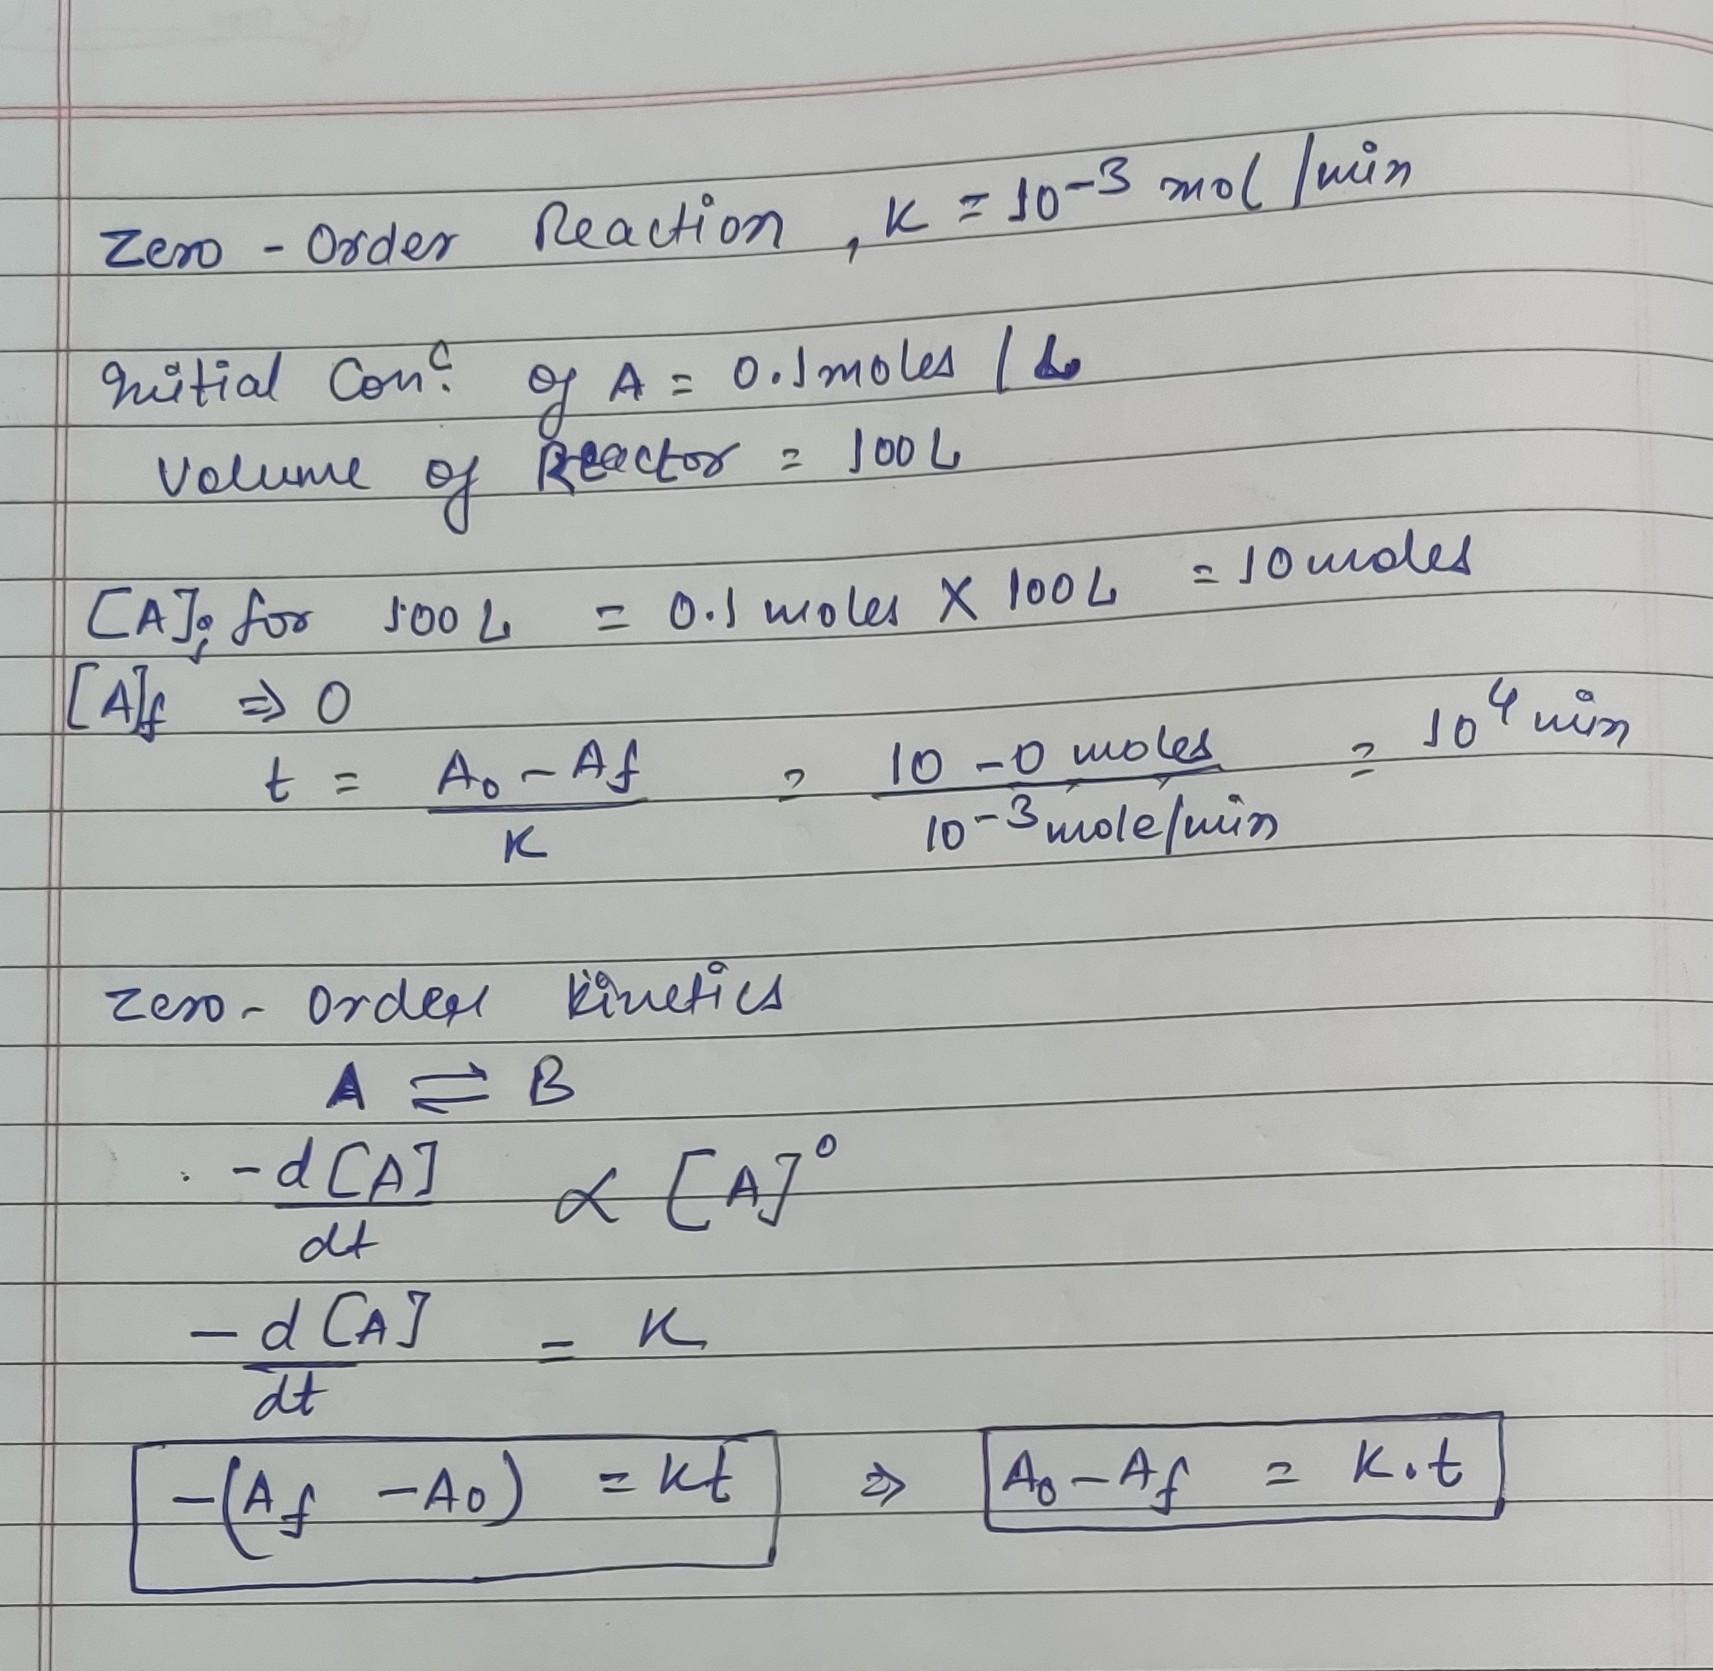 Zero - Order Reaction, K = 10⁻³ mol /min
Initial Conᶜ. of A = 0.1 moles / L
Volume of Reactor = 100 L
[A]ᵢ for 100 L = 0.1 moles X 100 L = 10 moles
[A]f ⇒ 0
t = A₀ - Af / K = 10 - 0 moles / 10⁻³ mole/min = 10⁴ min
Zero - Order Kinetics
A ⇌ B
-d[A]/dt ∝ [A]⁰
-d[A]/dt = K
-(Af - A₀) = Kt ⇒ A₀ - Af = K.t